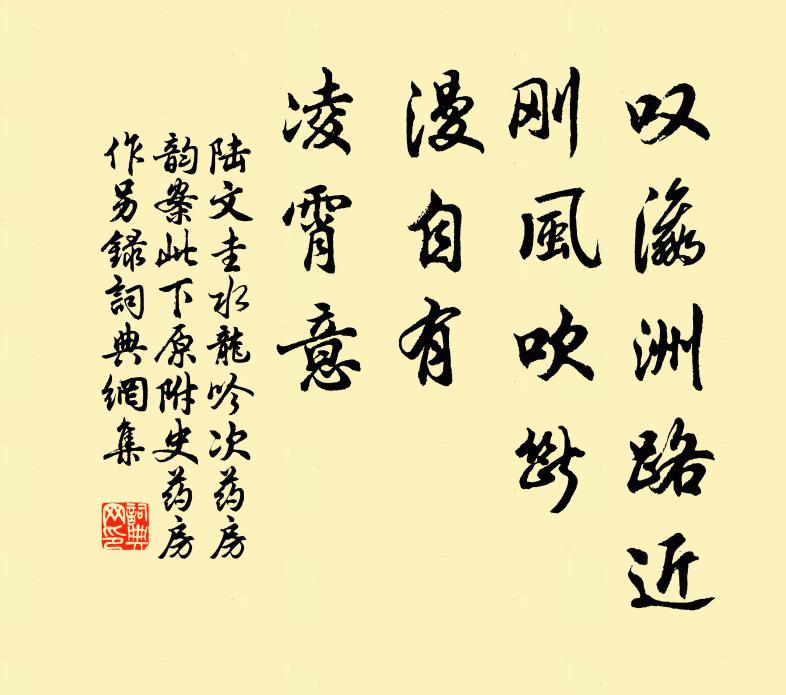 叹瀛洲路近
刚風吹断
漫自有
凌霄意
陆文圭水龍吟次药房
韵案此下原附史药房
作另録詞典網集
詞典网印